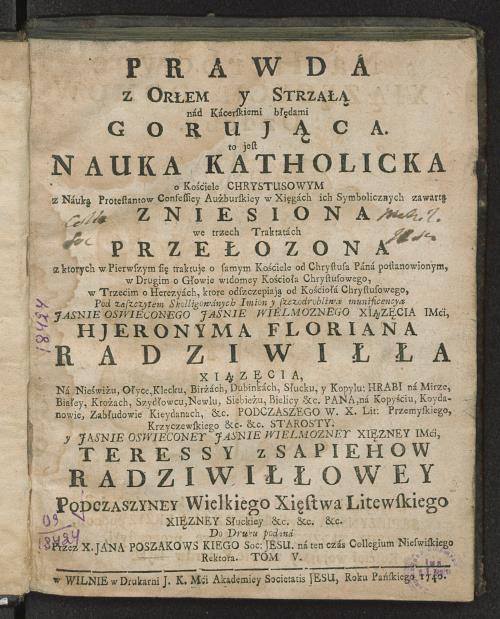 PRAWDÁ
z ORŁEM y STRZAŁĄ
nád Kácerſkiemi błędami
GORUJĄCA.
to jeſt
NAUKA KATHOLICKA
o Kościele CHRYSTUSOWYM
z Náuką Proteſtantow Confeſſiey Aużburſkiey w Xięgách ich Symbolicznych zawartą
ZNIESIONA
we trzech Traktatách
PRZEŁOZONA
z ktorych w Pierwſzym ſię traktuje o ſamym Kościele od Chryſtuſa Páná poſtanowionym,
w Drugim o Głowie widomey Kościoła Chryſtuſowego,
w Trzecim o Herezyách, ktore odſzczepiają od Kościołá Chryſtuſowego,
Pod zaſzczytem Skolligowánych Imion y ſzczodrobliwą munificencyą
JASNIE OSWIECONEGO JASNIE WIELMOZNEGO XIĄZĘCIA IMći,
HJERONYMA FLORIANA
RADZIWIŁŁA
XIĄZĘCIA,
Ná Nieświżu, Ołyce, Klecku, Birżách, Dubinkách, Słucku, y Kopylu: HRABI ná Mirze,
Białey, Krożach, Szydłowcu, Newlu, Siebieżu, Bielicy &c. PANA, ná Kopyściu, Koyda-
nowie, Zabłudowie Kieydanach, &c. PODCZASZEGO W. X. Lit: Przemyſkiego,
Krzyczewſkiego &c. &c. STAROSTY:
y JASNIE OSWIECONEY JASNIE WIELMOZNEY XIĘZNEY IMći,
TERESSY z SAPIEHOW
RADZIWIŁŁOWEY
PODCZASZYNEY Wielkiego Xięſtwa Litewſkiego
XIĘZNEY Słuckiey &c. &c. &c.
Do Druku podáná
Przez X. JANA POSZAKOWSKIEGO Soc: JESU. ná ten czás Collegium Nieſwiſkiego
Rektora. TOM V.
w WILNIE w Drukarni J. K. Mći Akademiey Societatis JESU, Roku Pańſkiego 1740.
18424
18424